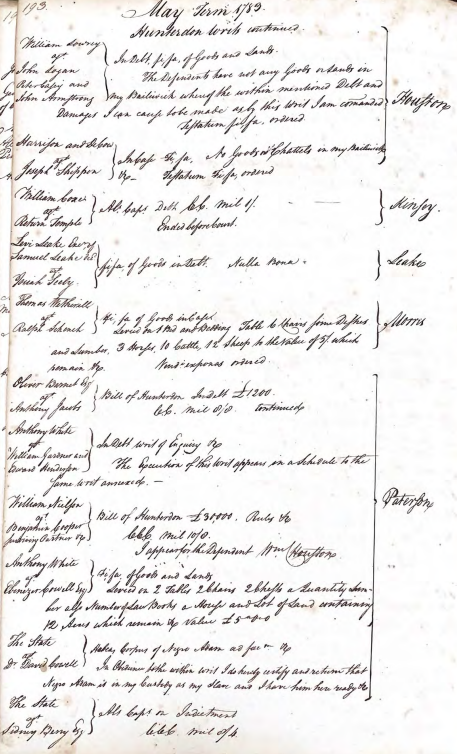 193.
May Term 1783.
Hunterdon Writs continued
William Lowrey
agt
John Logan
Peter Capey and
John Armstrong
In Debt, fi. fa. of Goods and Lands.
The Defendents have not any Goods or Lands in
my Bailiwick whereof the within mentioned Debt and
Damages I can cause to be made as by this Writ I am comanded
Testatum fi. fa. ordered
Houston
Harrison and
agt
Joseph Shippen
In Case Fi. fa. No Goods or Chattels in my Bailiwick
&c Testatum Fi. fa. ordered
William Coxe
agt
Return Temple
Als. Caps. Debt. CC. mil 8/.
Ended before Court.
Kinsey.
Levi Leake
Samuel Leake
agt
Isaiah Seely.
fi. fa. of Goods in Debt. Nulla Bona.
Leake
Thomas Wetherill
agt
Ralph Schenck
Fi. fa of Goods in Case
Levied on 1 Bed and Bedding Table & Chairs some Dishes
and Lumber, 3 Horses, 10 Cattle, 12 Sheep to the Value of which
remain &c. Vendi exponas ordered.
Morris
Oliver Barnet Esq
agt
Anthony Jacobs
Bill of Hunterdon In debt £1200.
CC. mil 8/0. continued
Anthony White
agt
William Gardner and
Edward Henderson
In Debt writ of Enquiry &c
The Execution of this Writ appears in a Schedule to the
same writ annexed. —
William Neilson
agt
Benjamin Cooper
surviving Partner &c
Bill of Hunterdon £30,000. Rules &c
CCC mil 10/0.
I appear for the Defendent Wm Houston
Paterson
Anthony White
agt
Ebenezer Cowell Esq
Fi. fa. of Goods and Lands
Levied on 2 Tables 2 Chairs 2 Chests a Quantity Lum-
ber also Number of Law Books a House and Lot of Land containing
12 Acres which remain &c Value £5..0..0
The State
agt
Dr. David Cowell
Habeas Corpus of Negro Adam ad fac &c
In Obedience to the within writ I do hereby certify and return that
Negro Adam is in my Custody as my Slave and I have him here ready &c
The State
agt
Sidney Berry Esq
Als Caps on Indictment
CCC. mil of 4.